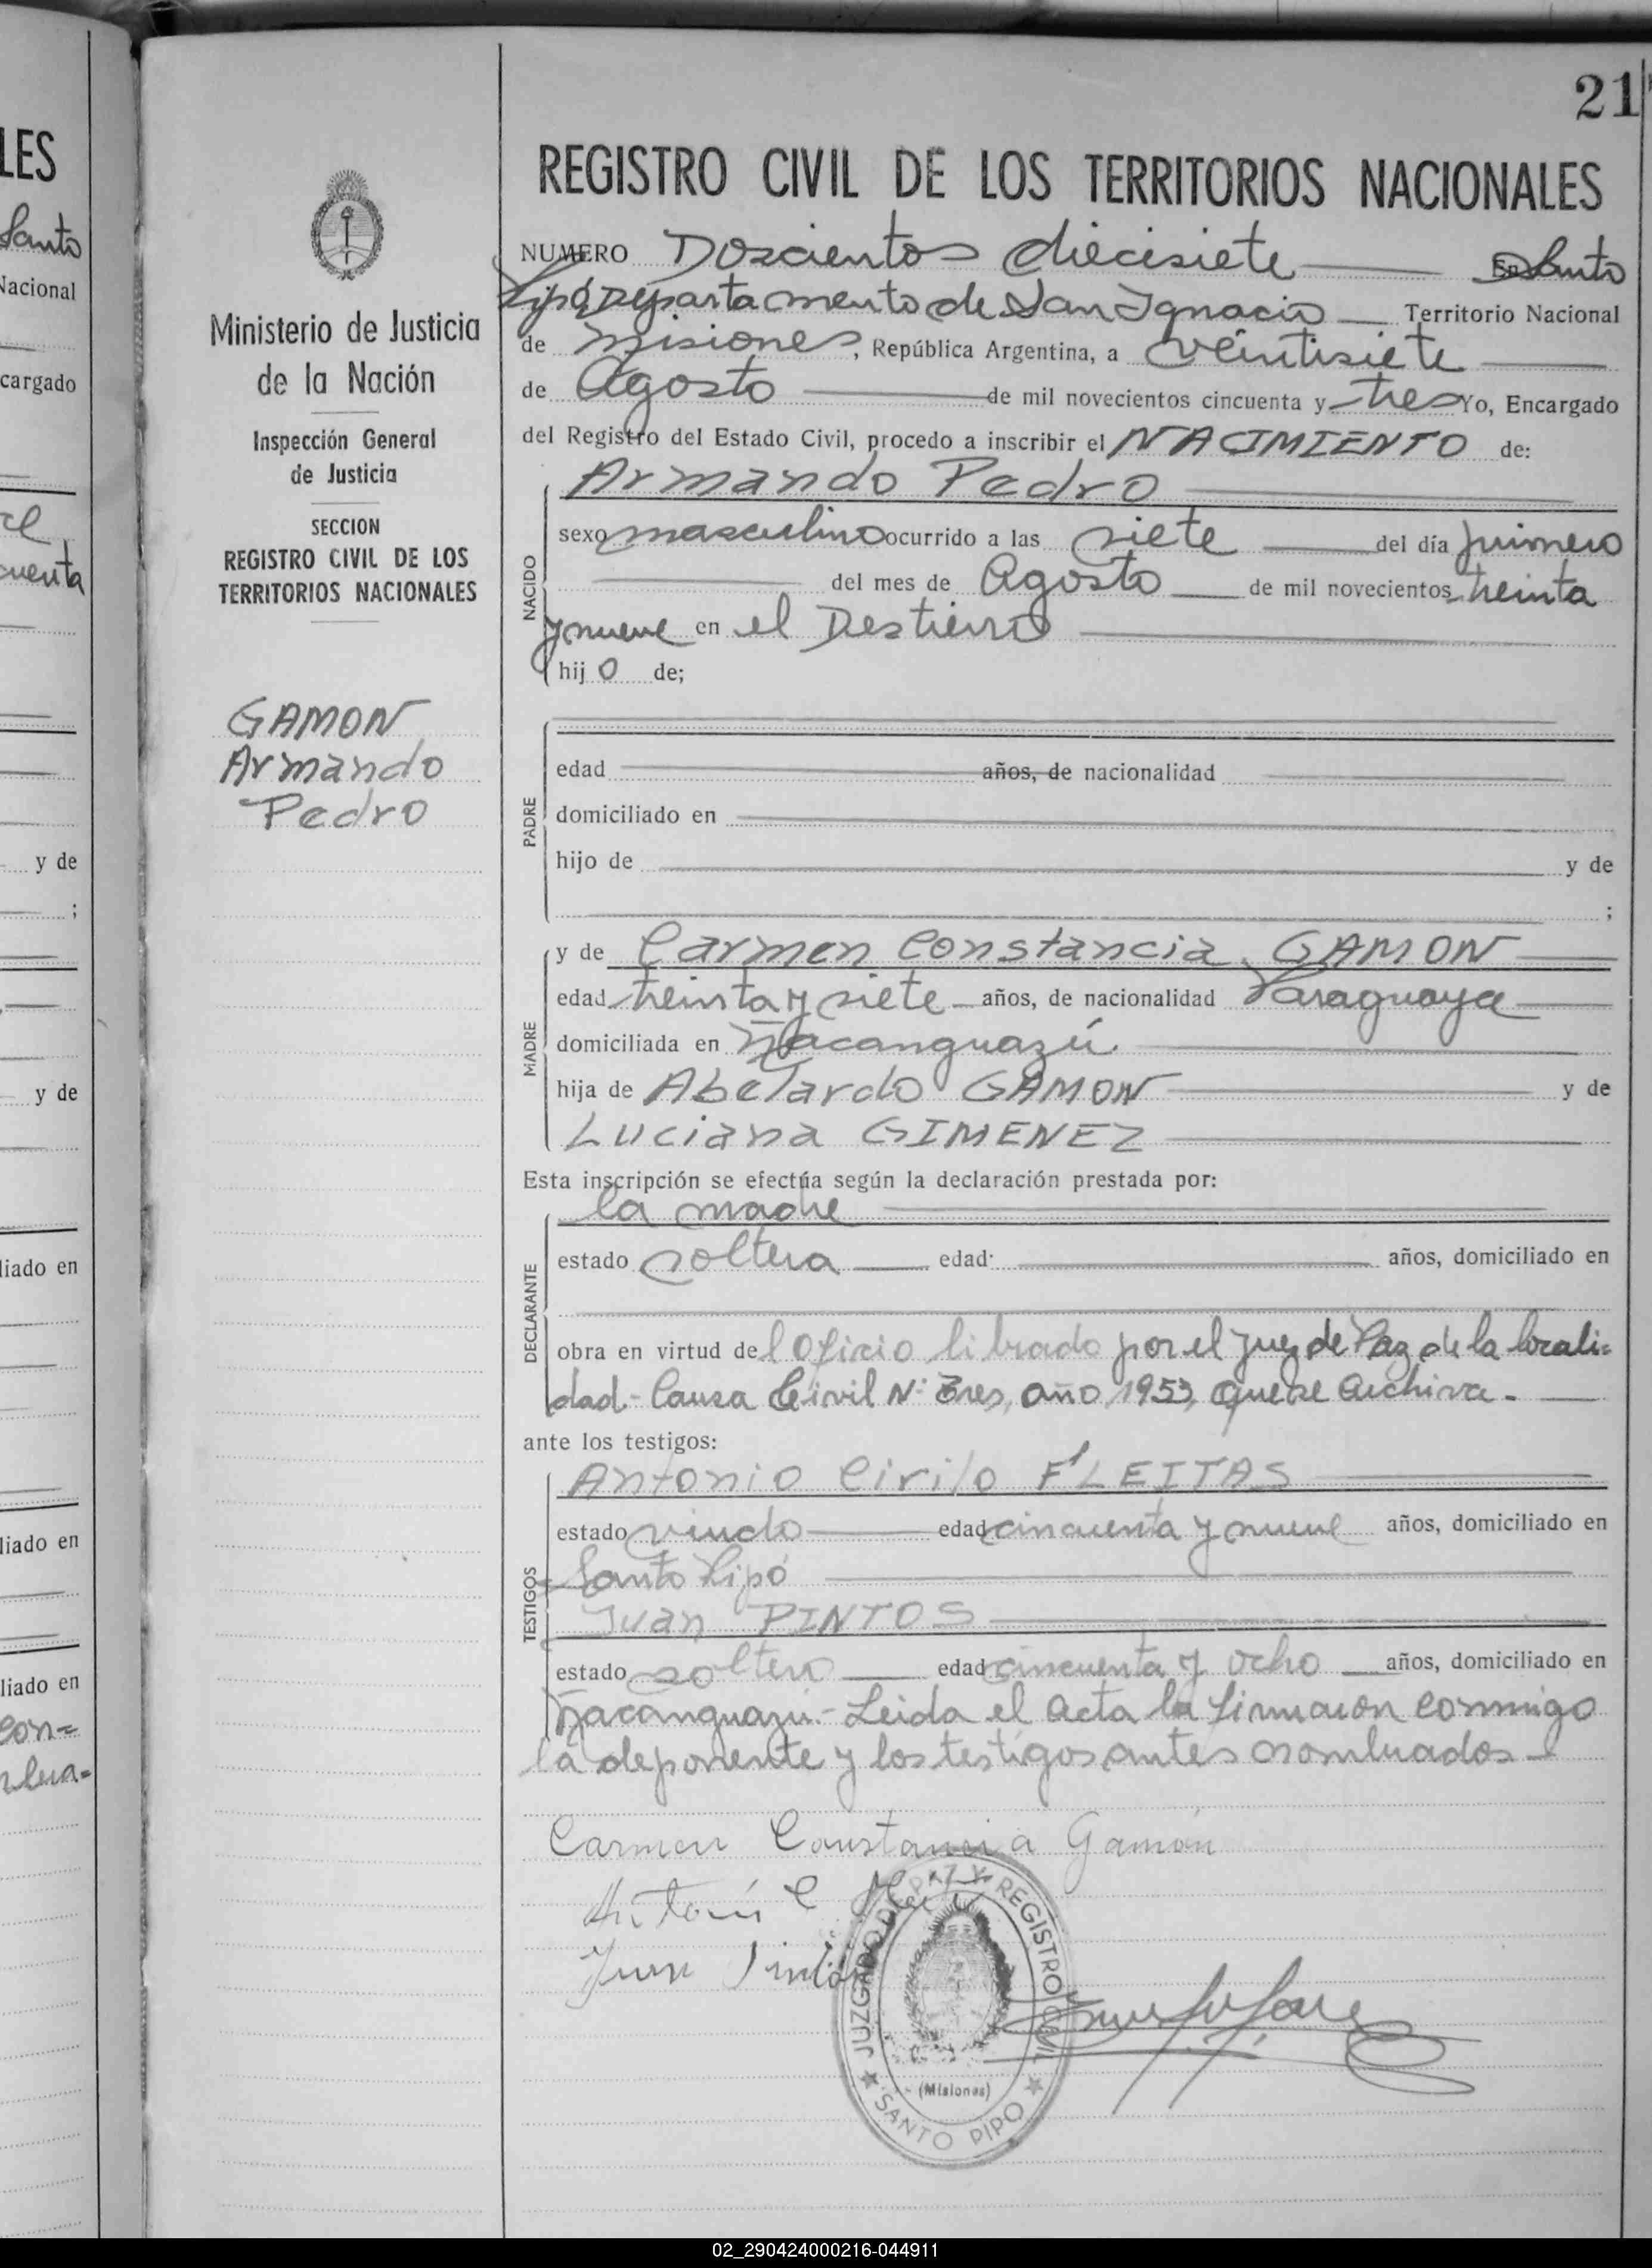 21
LES
Santo
Nacional
cargado
cuenta
y de
;
y de
liado en
liado en
liado en
con=
Ministerio de Justicia
de la Nación
Inspección General
de Justicia
SECCION
REGISTRO CIVIL DE LOS
TERRITORIOS NACIONALES
GAMON
Armando
Pedro
REGISTRO CIVIL DE LOS TERRITORIOS NACIONALES
NUMERO Doscientos diecisiete En Santo
Pipó Departamento de San Ignacio Territorio Nacional
de Misiones, República Argentina, a veintisiete
de Agosto de mil novecientos cincuenta y tres Yo, Encargado
del Registro del Estado Civil, procedo a inscribir el NACIMIENTO de:
Armando Pedro
NACIDO
sexo masculino ocurrido a las siete del día primero
del mes de Agosto de mil novecientos treinta
y nueve en el Destierro
hij o de;
PADRE
edad años, de nacionalidad
domiciliado en
hijo de y de
;
MADRE
y de Carmen Constancia GAMON
edad treinta y siete años, de nacionalidad Paraguaya
domiciliada en Ñacanguazú.
hija de Abelardo GAMON y de
Luciana GIMENEZ
Esta inscripción se efectúa según la declaración prestada por:
DECLARANTE
la madre
estado soltera edad años, domiciliado en
obra en virtud del Oficio librado por el Juez de Paz de la locali=
dad - Causa Civil Nº Tres, año 1953, que se archiva.-
ante los testigos:
TESTIGOS
Antonio Cirilo FLEITAS
estado viudo edad cincuenta y nueve años, domiciliado en
Santo Pipó
Juan PINTOS
estado soltero edad cincuenta y ocho años, domiciliado en
Ñacanguazú.- Leida el acta la firmaron conmigo
la deponente y los testigos antes nombrados -
Carmen Constancia Gamón
Juan Pintos
JUZGADO DE PAZ Y REGISTRO CIVIL
(Misiones)
SANTO PIPO
02_290424000216-044911